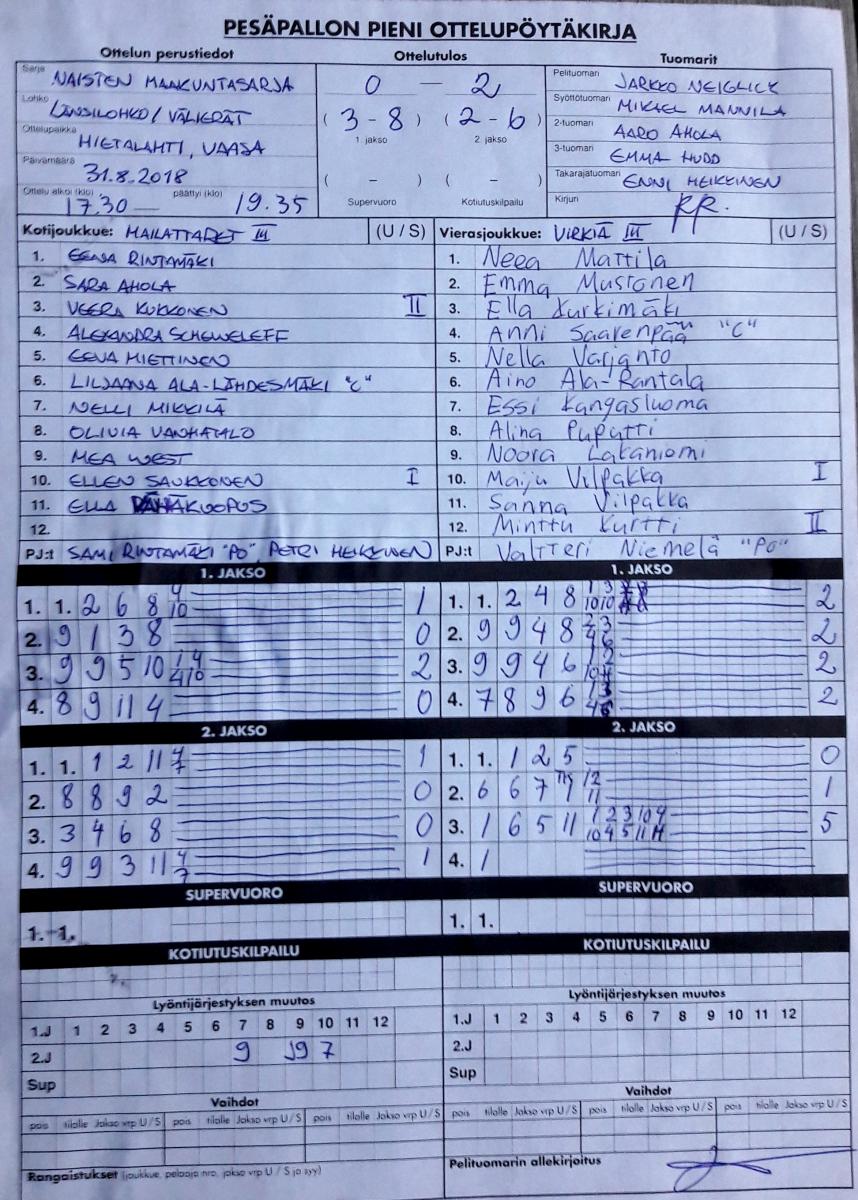 PESÄPALLON PIENI OTTELUPÖYTÄKIRJA
Ottelun perustiedot Ottelutulos Tuomarit
Sarja NAISTEN MAAKUNTASARJA
Lohko LÄNSILOHKO/ VÄLIERÄT
Ottelupaikka HIETALAHTI, VAASA
Päivämäärä 31.8.2018
Ottelu alkoi (klo) 17.30 — päättyi (klo) 19.35
0 — 2
(3 - 8) (2 - 6)
1. jakso 2. jakso
( - ) ( - )
Supervuoro Kotiutuskilpailu
Pelituomari JARKKO NEIGLICK
Syöttötuomari MIKAEL MANNILA
2-tuomari AARO AHOLA
3-tuomari EMMA HUDD
Takarajatuomari ENNI HEIKKINEN
Kirjuri RR.
Kotijoukkue: MAILATTARET III (U / S)
1. EENA RINTAMÄKI
2. SARA AHOLA
3. VEERA KUKKONEN II
4. ALEXANDRA SCHEWELEFF
5. EEVA MIETTINEN
6. LILJAANA ALA-LÄHDESMÄKI "C"
7. NELLI MIKKILÄ
8. OLIVIA VANHATALO
9. MEA WEST
10. ELLEN SAUKKONEN I
11. ELLA
12.
PJ:t SAMI RINTAMÄKI "PO", PETRI HEIKKINEN
Vierasjoukkue: VIRKIÄ III (U / S)
1. Neea Mattila
2. Emma Mustonen
3. Ella Kurkimäki
4. Anni Saarenpää "C"
5. Nella Varjanto
6. Aino Ala-Rantala
7. Essi Kangasluoma
8. Alina Puputti
9. Noora Lakaniemi
10. Maiju Vilpakka I
11. Sanna Vilpakka
12. Minttu Kurtti II
PJ:t Valtteri Niemelä "Po"
1. JAKSO
1. 1. 2 6 8 4 10 1
2. 9 1 3 8 0
3. 9 9 5 10 1 4 4 10 2
4. 8 9 11 4 0
1. JAKSO
1. 1. 2 4 8 1 3 10 10 2
2. 9 9 4 8 2 3 4 6 2
3. 9 9 4 6 2
4. 7 8 9 6 2
2. JAKSO
1. 1. 1 2 11 4 7 1
2. 8 8 9 2 0
3. 3 4 6 8 0
4. 9 9 3 11 4 7 1
2. JAKSO
1. 1. 1 2 5 0
2. 6 6 7 12 11 1
3. 1 6 5 11 1 2 3 10 4 10 4 5 11 5
4. 1
SUPERVUORO
1. 1.
SUPERVUORO
1. 1.
KOTIUTUSKILPAILU
KOTIUTUSKILPAILU
Lyöntijärjestyksen muutos
1.J 1 2 3 4 5 6 7 8 9 10 11 12
2.J 9 7
Sup
Lyöntijärjestyksen muutos
1.J 1 2 3 4 5 6 7 8 9 10 11 12
2.J
Sup
Vaihdot
pois tilalle Jakso vrp U / S pois tilalle Jakso vrp U / S pois tilalle Jakso vrp U / S
Vaihdot
pois tilalle Jakso vrp U / S pois tilalle Jakso vrp U / S pois tilalle Jakso vrp U / S
Rangaistukset (joukkue, pelaaja nro, jakso vrp U / S ja syy)
Pelituomarin allekirjoitus